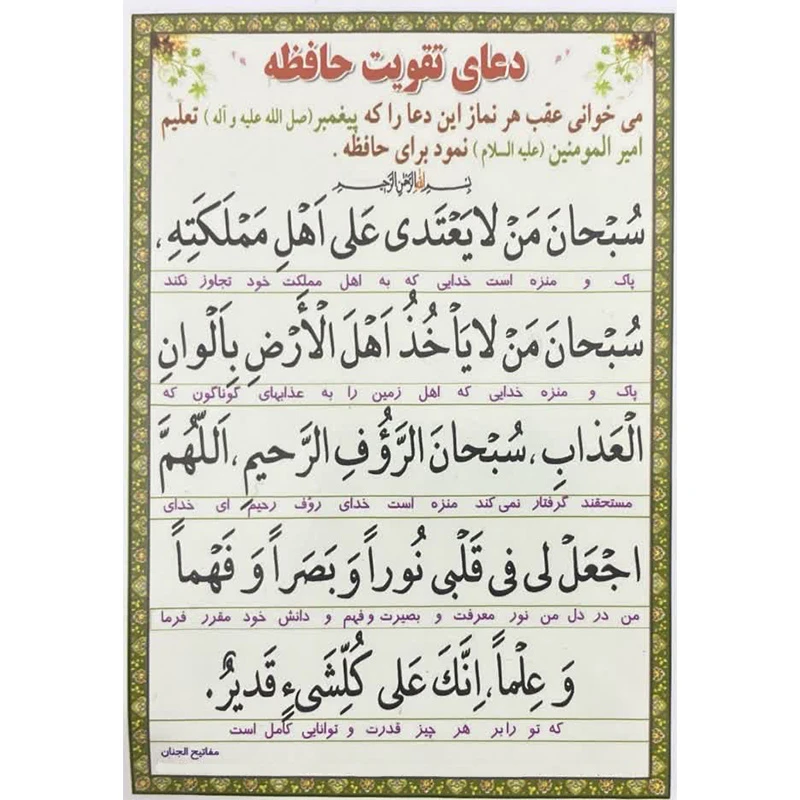 دعای تقویت حافظه
می خوانی عقب هر نماز این دعا را که پیغمبر (صل الله علیه و آله) تعلیم
امیر المومنین (علیه السلام) نمود برای حافظه .
بسم الله الرحمن الرحیم
سُبْحانَ مَنْ لایَعْتَدی عَلی اَهْلِ مَمْلَکَتِهِ،
پاک و منزه است خدایی که به اهل مملکت خود تجاوز نکند
سُبْحانَ مَنْ لایَأْخُذُ اَهْلَ الْأَرْضِ بِاَلْوانِ
پاک و منزه خدایی که اهل زمین را به عذابهای گوناگون که
الْعَذابِ، سُبْحانَ الرَّؤُفِ الرَّحیمِ، اَللّهُمَّ
مستحقند گرفتار نمی کند منزه است خدای رؤف رحیم ای خدای
اجْعَلْ لی فی قَلْبی نُوراً وَ بَصَراً وَ فَهْماً
من در دل من نور معرفت و بصیرت و فهم و دانش خود مقرر فرما
وَ عِلْماً، اِنَّکَ عَلی کُلِّشَیءٍ قَدیرٌ.
که تو رابر هر چیز قدرت و توانایی کامل است
مفاتیح الجنان